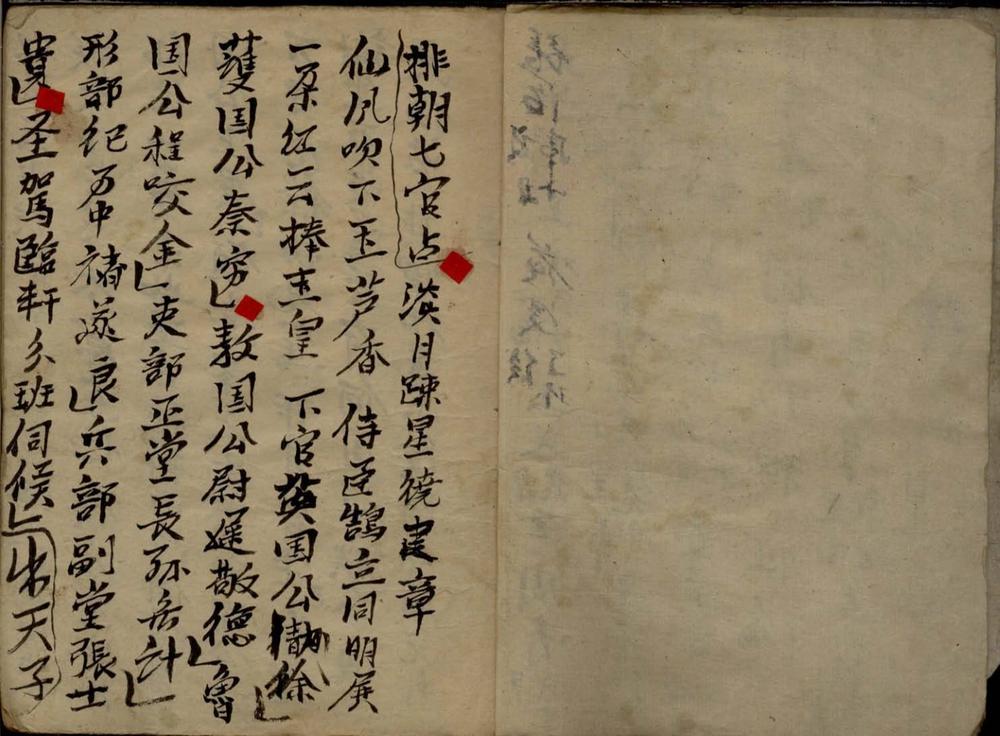 排朝七官占淡月踈星繞建章
仙凤吹下玉芦香 侍臣鵠立同明展
一朵红云捧玉皇 下官英国公徐
護国公秦穷敖国公尉遲敬德魯
国公程咬金吏部正堂長孫无计
形部纪万中禇遂良兵部副堂張士
貴圣駕臨軒分班伺候出天子